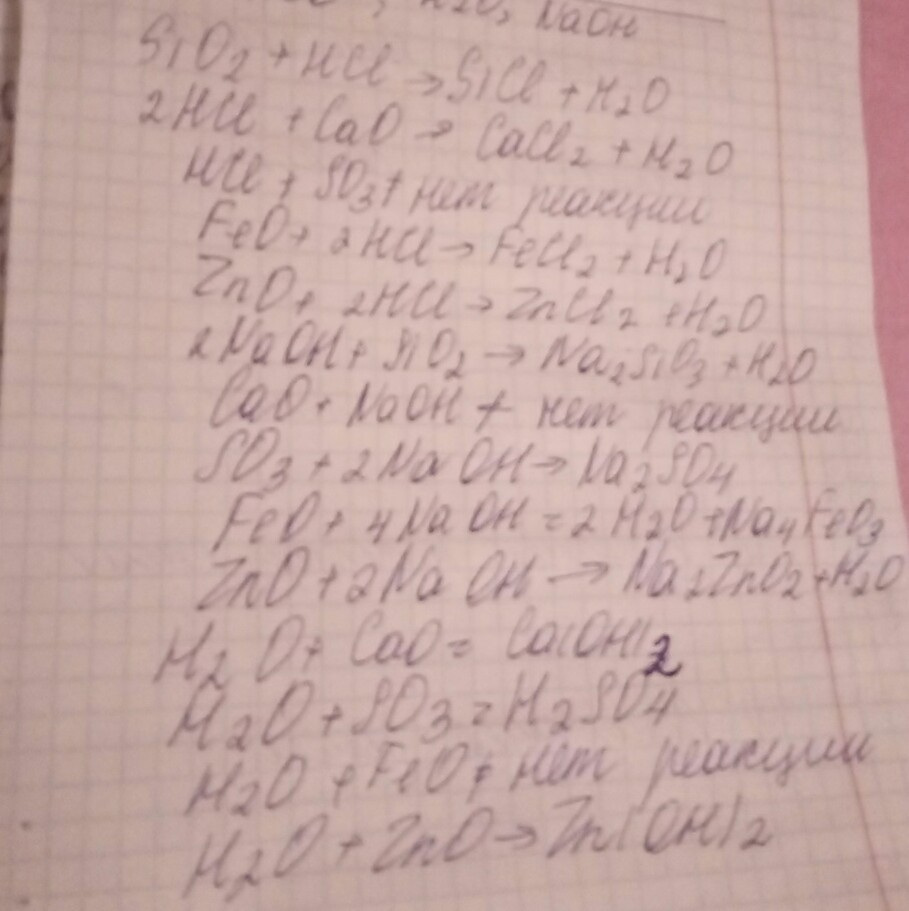 H2O, NaOH
SiO2 + HCl → SiCl + H2O
2HCl + CaO → CaCl2 + H2O
HCl + SO3 ≠ нет реакции
FeO + 2HCl → FeCl2 + H2O
ZnO + 2HCl → ZnCl2 + H2O
2NaOH + SiO2 → Na2SiO3 + H2O
CaO + NaOH ≠ нет реакции
SO3 + 2NaOH → Na2SO4
FeO + 4NaOH = 2H2O + Na4FeO3
ZnO + 2NaOH → Na2ZnO2 + H2O
H2O + CaO = Ca(OH)2
H2O + SO3 = H2SO4
H2O + FeO ≠ нет реакции
H2O + ZnO → Zn(OH)2